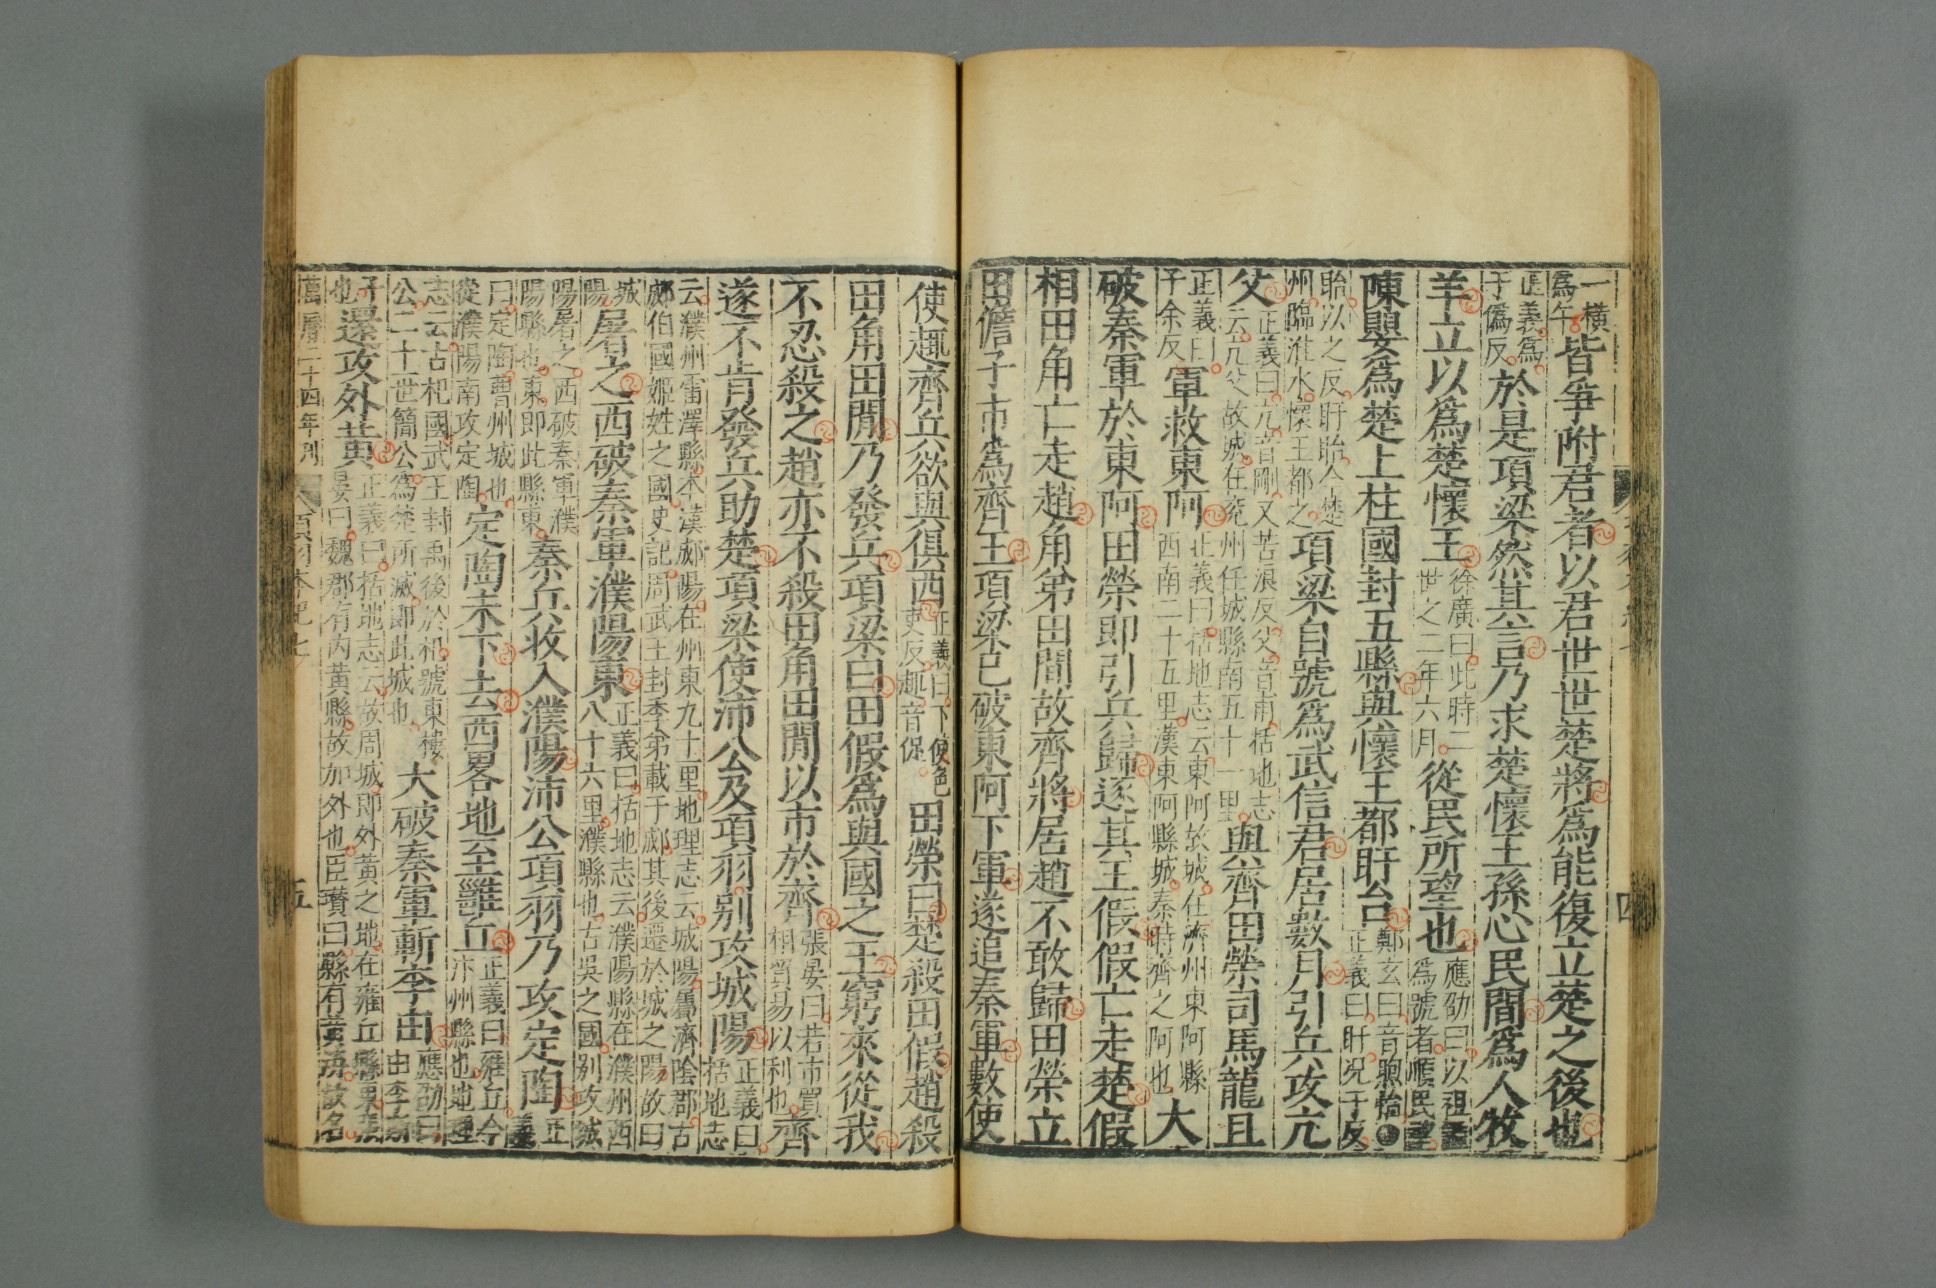 一橫爲午皆爭附君者以君世世楚將爲能復立楚之後也
正義爲于僞反於是項梁然其言乃求楚懷王孫心民間爲人牧
羊立以爲楚懷王徐廣曰此時二世之二年六月從民所望也應劭曰以祖諡爲號者順民望
陳嬰爲楚上柱國封五縣與懷王都盱台鄭玄曰音煦怡●正義曰盱況于反
眙以之反盱眙今楚州臨淮水懷王都之項梁自號爲武信君居數月引兵攻亢
父正義曰亢音剛又苦浪反父音甫括地志云亢父故城在兗州任城縣南五十一里與齊田榮司馬龍且
正義曰子余反軍救東阿正義曰括地志云東阿故城在濟州東阿縣西南二十五里漢東阿縣城秦時齊之阿也大
破秦軍於東阿田榮即引兵歸逐其王假假亡走楚假
相田角亡走趙角弟田間故齊將居趙不敢歸田榮立
田儋子市爲齊王項梁已破東阿下軍遂追秦軍數使
四
使趣齊兵欲與俱西正義曰下使色吏反趣音促田榮曰楚殺田假趙殺
田角田間乃發兵項梁曰田假爲與國之王窮來從我
不忍殺之趙亦不殺田角田間以市於齊張晏曰若市買相貿易以利也齊
遂不肯發兵助楚項梁使沛公及項羽别攻城陽正義曰括地志
云濮州雷澤縣本漢郕陽在州東九十里地理志云城陽屬濟陰郡古郕伯國姬姓之國史記周武王封季弟載于郕其後遷於城之陽故曰
城陽屠之西破秦軍濮陽東正義曰括地志云濮陽縣在濮州西八十六里濮縣也古吳之國别攻城
陽屠之西破秦軍濮陽縣也東即此縣東秦兵收入濮陽沛公項羽乃攻定陶正義
曰定陶曹州城也從濮陽南攻定陶定陶未下去西畧地至雝丘正義曰雍丘今汴州縣也地理
志云古杞國武王封禹後於杞號東樓公二十一世簡公爲楚所滅即此城也大破秦軍斬李由應劭曰由李斯
子也還攻外黃正義曰括地志云故周城即外黃之地在雍丘縣東張晏曰魏郡有内黃縣故加外也臣瓚曰縣有黃溝故名
萬曆二十四年刊 項羽本紀七 五